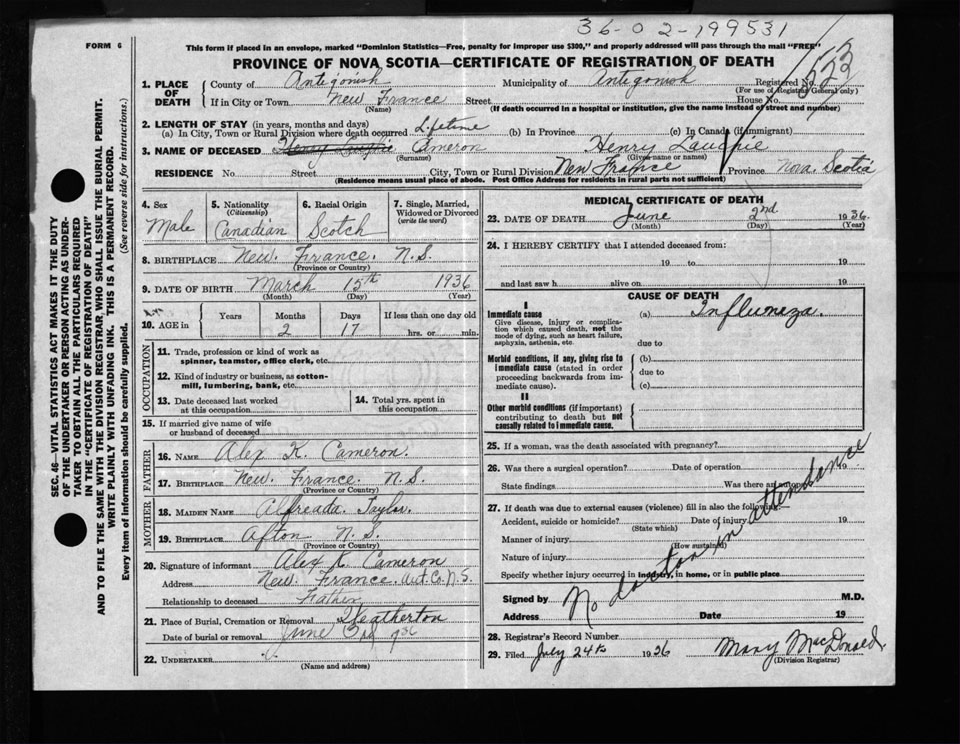 36-02-199531
FORM 6
This form if placed in an envelope, marked "Dominion Statistics—Free, penalty for improper use $300," and properly addressed will pass through the mail "FREE"
PROVINCE OF NOVA SCOTIA—CERTIFICATE OF REGISTRATION OF DEATH
1. PLACE OF DEATH
County of Antigonish Municipality of Antigonish Registered No.
(For use of Registrar General only)
If in City or Town New France Street House No.
(Name) (If death occurred in a hospital or institution, give the name instead of street and number)
2. LENGTH OF STAY (in years, months and days)
(a) In City, Town or Rural Division where death occurred Lifetime (b) In Province (c) In Canada (if immigrant)
3. NAME OF DECEASED Henry Lauchie Cameron Henry Lauchie
(Surname) (Given name or names)
RESIDENCE No. Street City, Town or Rural Division New France Province Nova Scotia
(Residence means usual place of abode. Post Office Address for residents in rural parts not sufficient)
4. Sex Male
5. Nationality (Citizenship) Canadian
6. Racial Origin Scotch
7. Single, Married, Widowed or Divorced (write the word)
8. BIRTHPLACE New France. N.S.
(Province or Country)
9. DATE OF BIRTH March 15th 1936
(Month) (Day) (Year)
10. AGE in Years Months Days If less than one day old
2 17 hrs. or min.
OCCUPATION
11. Trade, profession or kind of work as spinner, teamster, office clerk, etc.
12. Kind of industry or business, as cotton-mill, lumbering, bank, etc.
13. Date deceased last worked at this occupation
14. Total yrs. spent in this occupation
15. If married give name of wife or husband of deceased
FATHER
16. NAME Alex K. Cameron.
17. BIRTHPLACE New France. N.S.
(Province or Country)
MOTHER
18. MAIDEN NAME Alfreada Taylor.
19. BIRTHPLACE Afton N.S.
(Province or Country)
20. Signature of informant Alex K. Cameron
Address New France. Ant. Co. N.S.
Relationship to deceased Father
21. Place of Burial, Cremation or Removal Heatherton
Date of burial or removal June
22. UNDERTAKER
(Name and address)
MEDICAL CERTIFICATE OF DEATH
23. DATE OF DEATH June 2nd 1936
(Month) (Day) (Year)
24. I HEREBY CERTIFY that I attended deceased from:
19 to 19
and last saw h alive on 19
CAUSE OF DEATH
I
Immediate cause
Give disease, injury or complication which caused death, not the mode of dying, such as heart failure, asphyxia, asthenia, etc.
(a) Influeneza.
due to
Morbid conditions, if any, giving rise to immediate cause (stated in order proceeding backwards from immediate cause).
(b)
due to
(c)
II
Other morbid conditions (if important) contributing to death but not causally related to immediate cause.
25. If a woman, was the death associated with pregnancy?
26. Was there a surgical operation? Date of operation 19
State findings Was there an autopsy
27. If death was due to external causes (violence) fill in also the following:
Accident, suicide or homicide? Date of injury 19
(State which)
Manner of injury
(How sustained)
Nature of injury
Specify whether injury occurred in industry, in home, or in public place
No doctor in attendance
Signed by M.D.
Address Date 19
28. Registrar's Record Number
29. Filed July 24th 1936 Mary MacDonald
(Division Registrar)
SEC. 46—VITAL STATISTICS ACT MAKES IT THE DUTY
OF THE UNDERTAKER OR PERSON ACTING AS UNDER-
TAKER TO OBTAIN ALL THE PARTICULARS REQUIRED
IN THE "CERTIFICATE OF REGISTRATION OF DEATH"
AND TO FILE THE SAME WITH THE DIVISION REGISTRAR, WHO SHALL ISSUE THE BURIAL PERMIT.
WRITE PLAINLY WITH UNFADING INK. THIS IS A PERMANENT RECORD.
Every item of information should be carefully supplied. (See reverse side for instructions.)